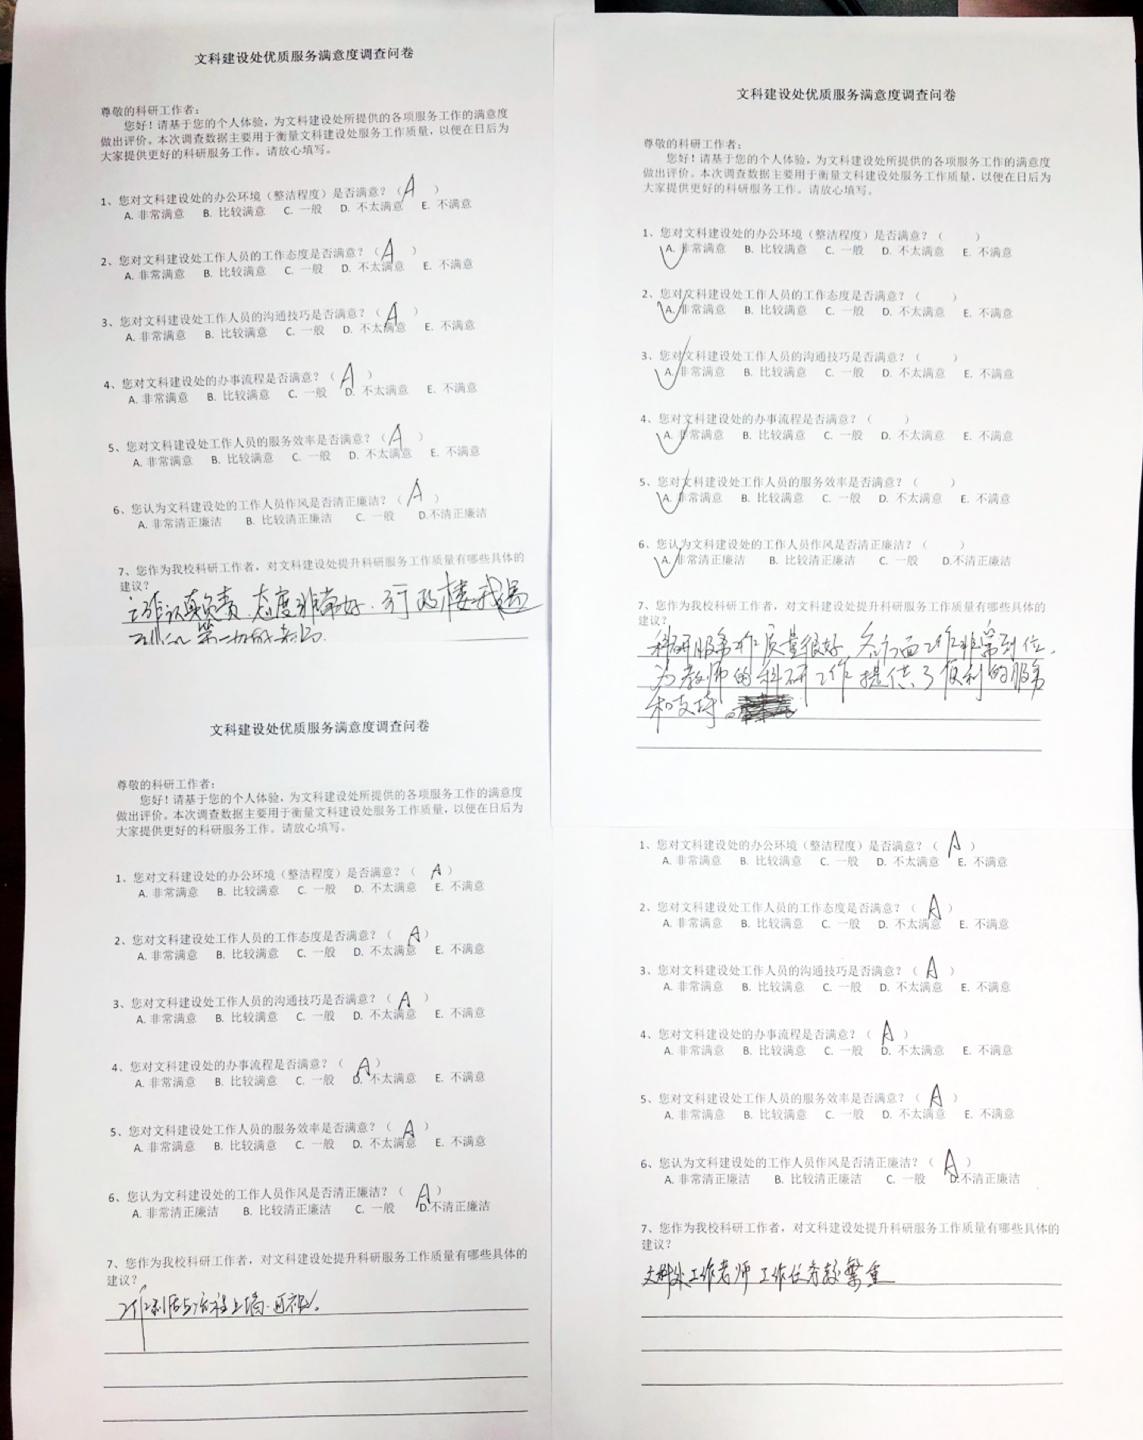 文科建设处优质服务满意度调查问卷
尊敬的科研工作者：
您好！请基于您的个人体验，为文科建设处所提供的各项服务工作的满意度
做出评价。本次调查数据主要用于衡量文科建设处服务工作质量，以便在日后为
大家提供更好的科研服务工作。请放心填写。
1、您对文科建设处的办公环境（整洁程度）是否满意？（A）
A. 非常满意 B. 比较满意 C. 一般 D. 不太满意 E. 不满意
2、您对文科建设处工作人员的工作态度是否满意？（A）
A. 非常满意 B. 比较满意 C. 一般 D. 不太满意 E. 不满意
3、您对文科建设处工作人员的沟通技巧是否满意？（A）
A. 非常满意 B. 比较满意 C. 一般 D. 不太满意 E. 不满意
4、您对文科建设处的办事流程是否满意？（A）
A. 非常满意 B. 比较满意 C. 一般 D. 不太满意 E. 不满意
5、您对文科建设处工作人员的服务效率是否满意？（A）
A. 非常满意 B. 比较满意 C. 一般 D. 不太满意 E. 不满意
6、您认为文科建设处的工作人员作风是否清正廉洁？（A）
A. 非常清正廉洁 B. 比较清正廉洁 C. 一般 D.不清正廉洁
7、您作为我校科研工作者，对文科建设处提升科研服务工作质量有哪些具体的
建议？
工作认真负责．态度非常好．行政楼我遇
文科建设处优质服务满意度调查问卷
尊敬的科研工作者：
您好！请基于您的个人体验，为文科建设处所提供的各项服务工作的满意度
做出评价。本次调查数据主要用于衡量文科建设处服务工作质量，以便在日后为
大家提供更好的科研服务工作。请放心填写。
1、您对文科建设处的办公环境（整洁程度）是否满意？（ ）
A. 非常满意 B. 比较满意 C. 一般 D. 不太满意 E. 不满意
2、您对文科建设处工作人员的工作态度是否满意？（ ）
A. 非常满意 B. 比较满意 C. 一般 D. 不太满意 E. 不满意
3、您对文科建设处工作人员的沟通技巧是否满意？（ ）
A. 非常满意 B. 比较满意 C. 一般 D. 不太满意 E. 不满意
4、您对文科建设处的办事流程是否满意？（ ）
A. 非常满意 B. 比较满意 C. 一般 D. 不太满意 E. 不满意
5、您对文科建设处工作人员的服务效率是否满意？（ ）
A. 非常满意 B. 比较满意 C. 一般 D. 不太满意 E. 不满意
6、您认为文科建设处的工作人员作风是否清正廉洁？（ ）
A. 非常清正廉洁 B. 比较清正廉洁 C. 一般 D.不清正廉洁
7、您作为我校科研工作者，对文科建设处提升科研服务工作质量有哪些具体的
建议？
科研服务工作质量很好，各方面工作非常到位，
为教师的科研工作提供了便利的服务
和支持。
文科建设处优质服务满意度调查问卷
尊敬的科研工作者：
您好！请基于您的个人体验，为文科建设处所提供的各项服务工作的满意度
做出评价。本次调查数据主要用于衡量文科建设处服务工作质量，以便在日后为
大家提供更好的科研服务工作。请放心填写。
1、您对文科建设处的办公环境（整洁程度）是否满意？（A）
A. 非常满意 B. 比较满意 C. 一般 D. 不太满意 E. 不满意
2、您对文科建设处工作人员的工作态度是否满意？（A）
A. 非常满意 B. 比较满意 C. 一般 D. 不太满意 E. 不满意
3、您对文科建设处工作人员的沟通技巧是否满意？（A）
A. 非常满意 B. 比较满意 C. 一般 D. 不太满意 E. 不满意
4、您对文科建设处的办事流程是否满意？（A）
A. 非常满意 B. 比较满意 C. 一般 D. 不太满意 E. 不满意
5、您对文科建设处工作人员的服务效率是否满意？（A）
A. 非常满意 B. 比较满意 C. 一般 D. 不太满意 E. 不满意
6、您认为文科建设处的工作人员作风是否清正廉洁？（A）
A. 非常清正廉洁 B. 比较清正廉洁 C. 一般 D.不清正廉洁
7、您作为我校科研工作者，对文科建设处提升科研服务工作质量有哪些具体的
建议？
1、您对文科建设处的办公环境（整洁程度）是否满意？（A）
A. 非常满意 B. 比较满意 C. 一般 D. 不太满意 E. 不满意
2、您对文科建设处工作人员的工作态度是否满意？（A）
A. 非常满意 B. 比较满意 C. 一般 D. 不太满意 E. 不满意
3、您对文科建设处工作人员的沟通技巧是否满意？（A）
A. 非常满意 B. 比较满意 C. 一般 D. 不太满意 E. 不满意
4、您对文科建设处的办事流程是否满意？（A）
A. 非常满意 B. 比较满意 C. 一般 D. 不太满意 E. 不满意
5、您对文科建设处工作人员的服务效率是否满意？（A）
A. 非常满意 B. 比较满意 C. 一般 D. 不太满意 E. 不满意
6、您认为文科建设处的工作人员作风是否清正廉洁？（A）
A. 非常清正廉洁 B. 比较清正廉洁 C. 一般 D.不清正廉洁
7、您作为我校科研工作者，对文科建设处提升科研服务工作质量有哪些具体的
建议？
文科处工作老师工作任务较繁重